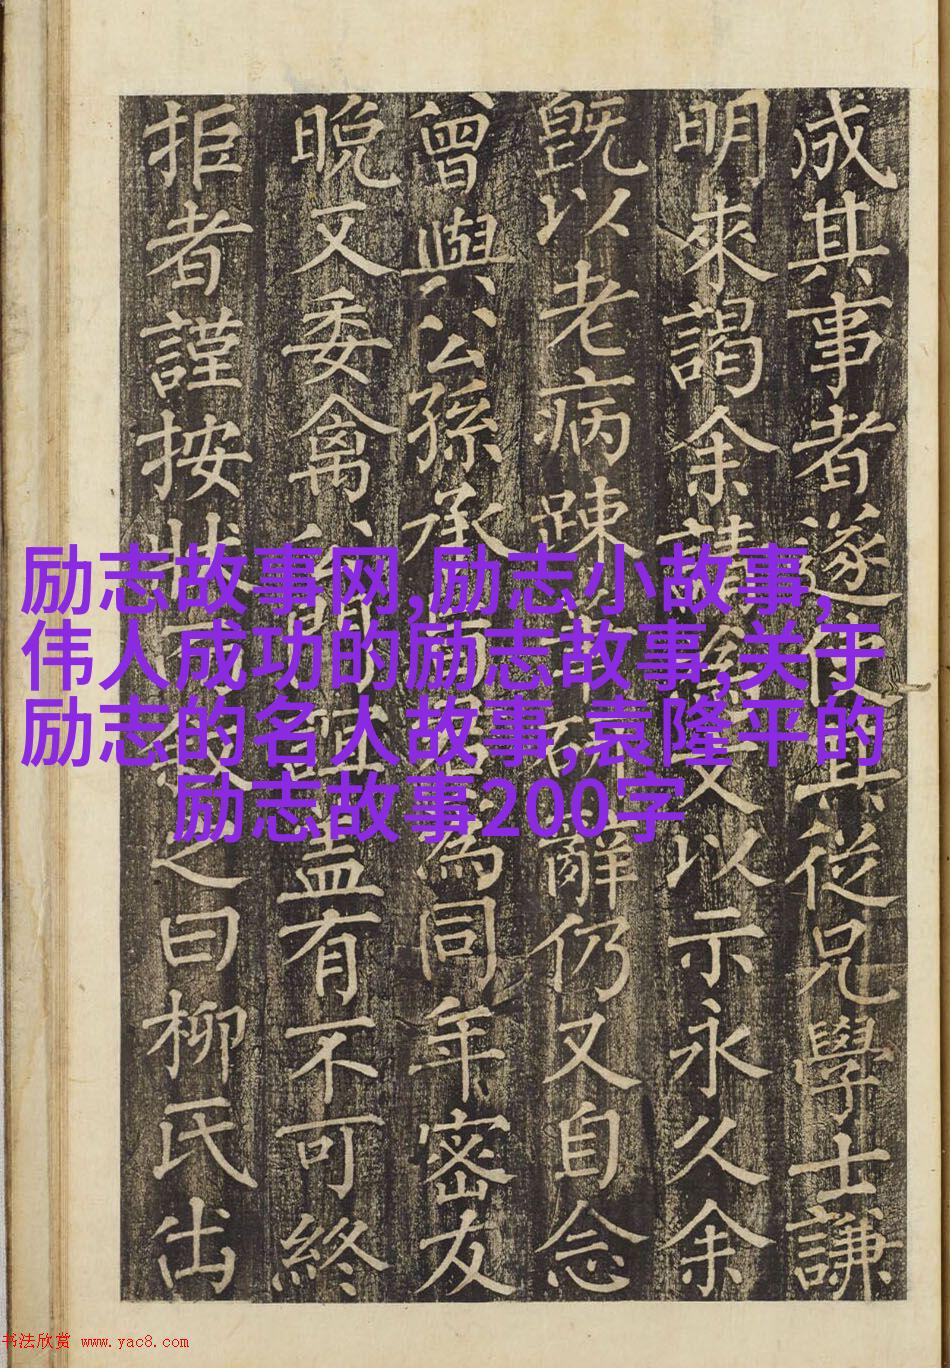 成其事者遂使其從兄學士謙
明來謁余請文以示永久余
既以老病踈硯辭仍又自念
曾與公孫承為同年密友
晚又委禽於盖有不可終
拒者謹按狀之曰柳氏出
励志故事网,励志小故事,
伟人成功的励志故事,关于
励志的名人故事,袁隆平的
励志故事200字
书法欣赏 www.yac8.com